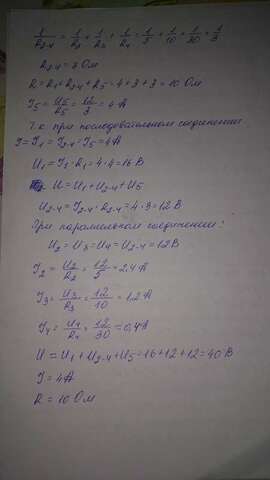 1/R2-4 = 1/R2 + 1/R3 + 1/R4 = 1/5 + 1/10 + 1/30 = 1/3
R2-4 = 3 Ом
R = R1 + R2-4 + R5 = 4 + 3 + 3 = 10 Ом
I5 = U5/R5 = 12/3 = 4 А
Т.к при последовательном соединении
I = I1 = I2-4 = I5 = 4А
U1 = I1 · R1 = 4 · 4 = 16 В
U = U1 + U2-4 + U5
U2-4 = I2-4 · R2-4 = 4 · 3 = 12 В
При параллельном соединении:
U2 = U3 = U4 = U2-4 = 12В
I2 = U2/R2 = 12/5 = 2,4 А
I3 = U3/R3 = 12/10 = 1,2 А
I4 = U4/R4 = 12/30 = 0,4А
U = U1 + U2-4 + U5 = 16 + 12 + 12 = 40 В
I = 4А
R = 10 Ом